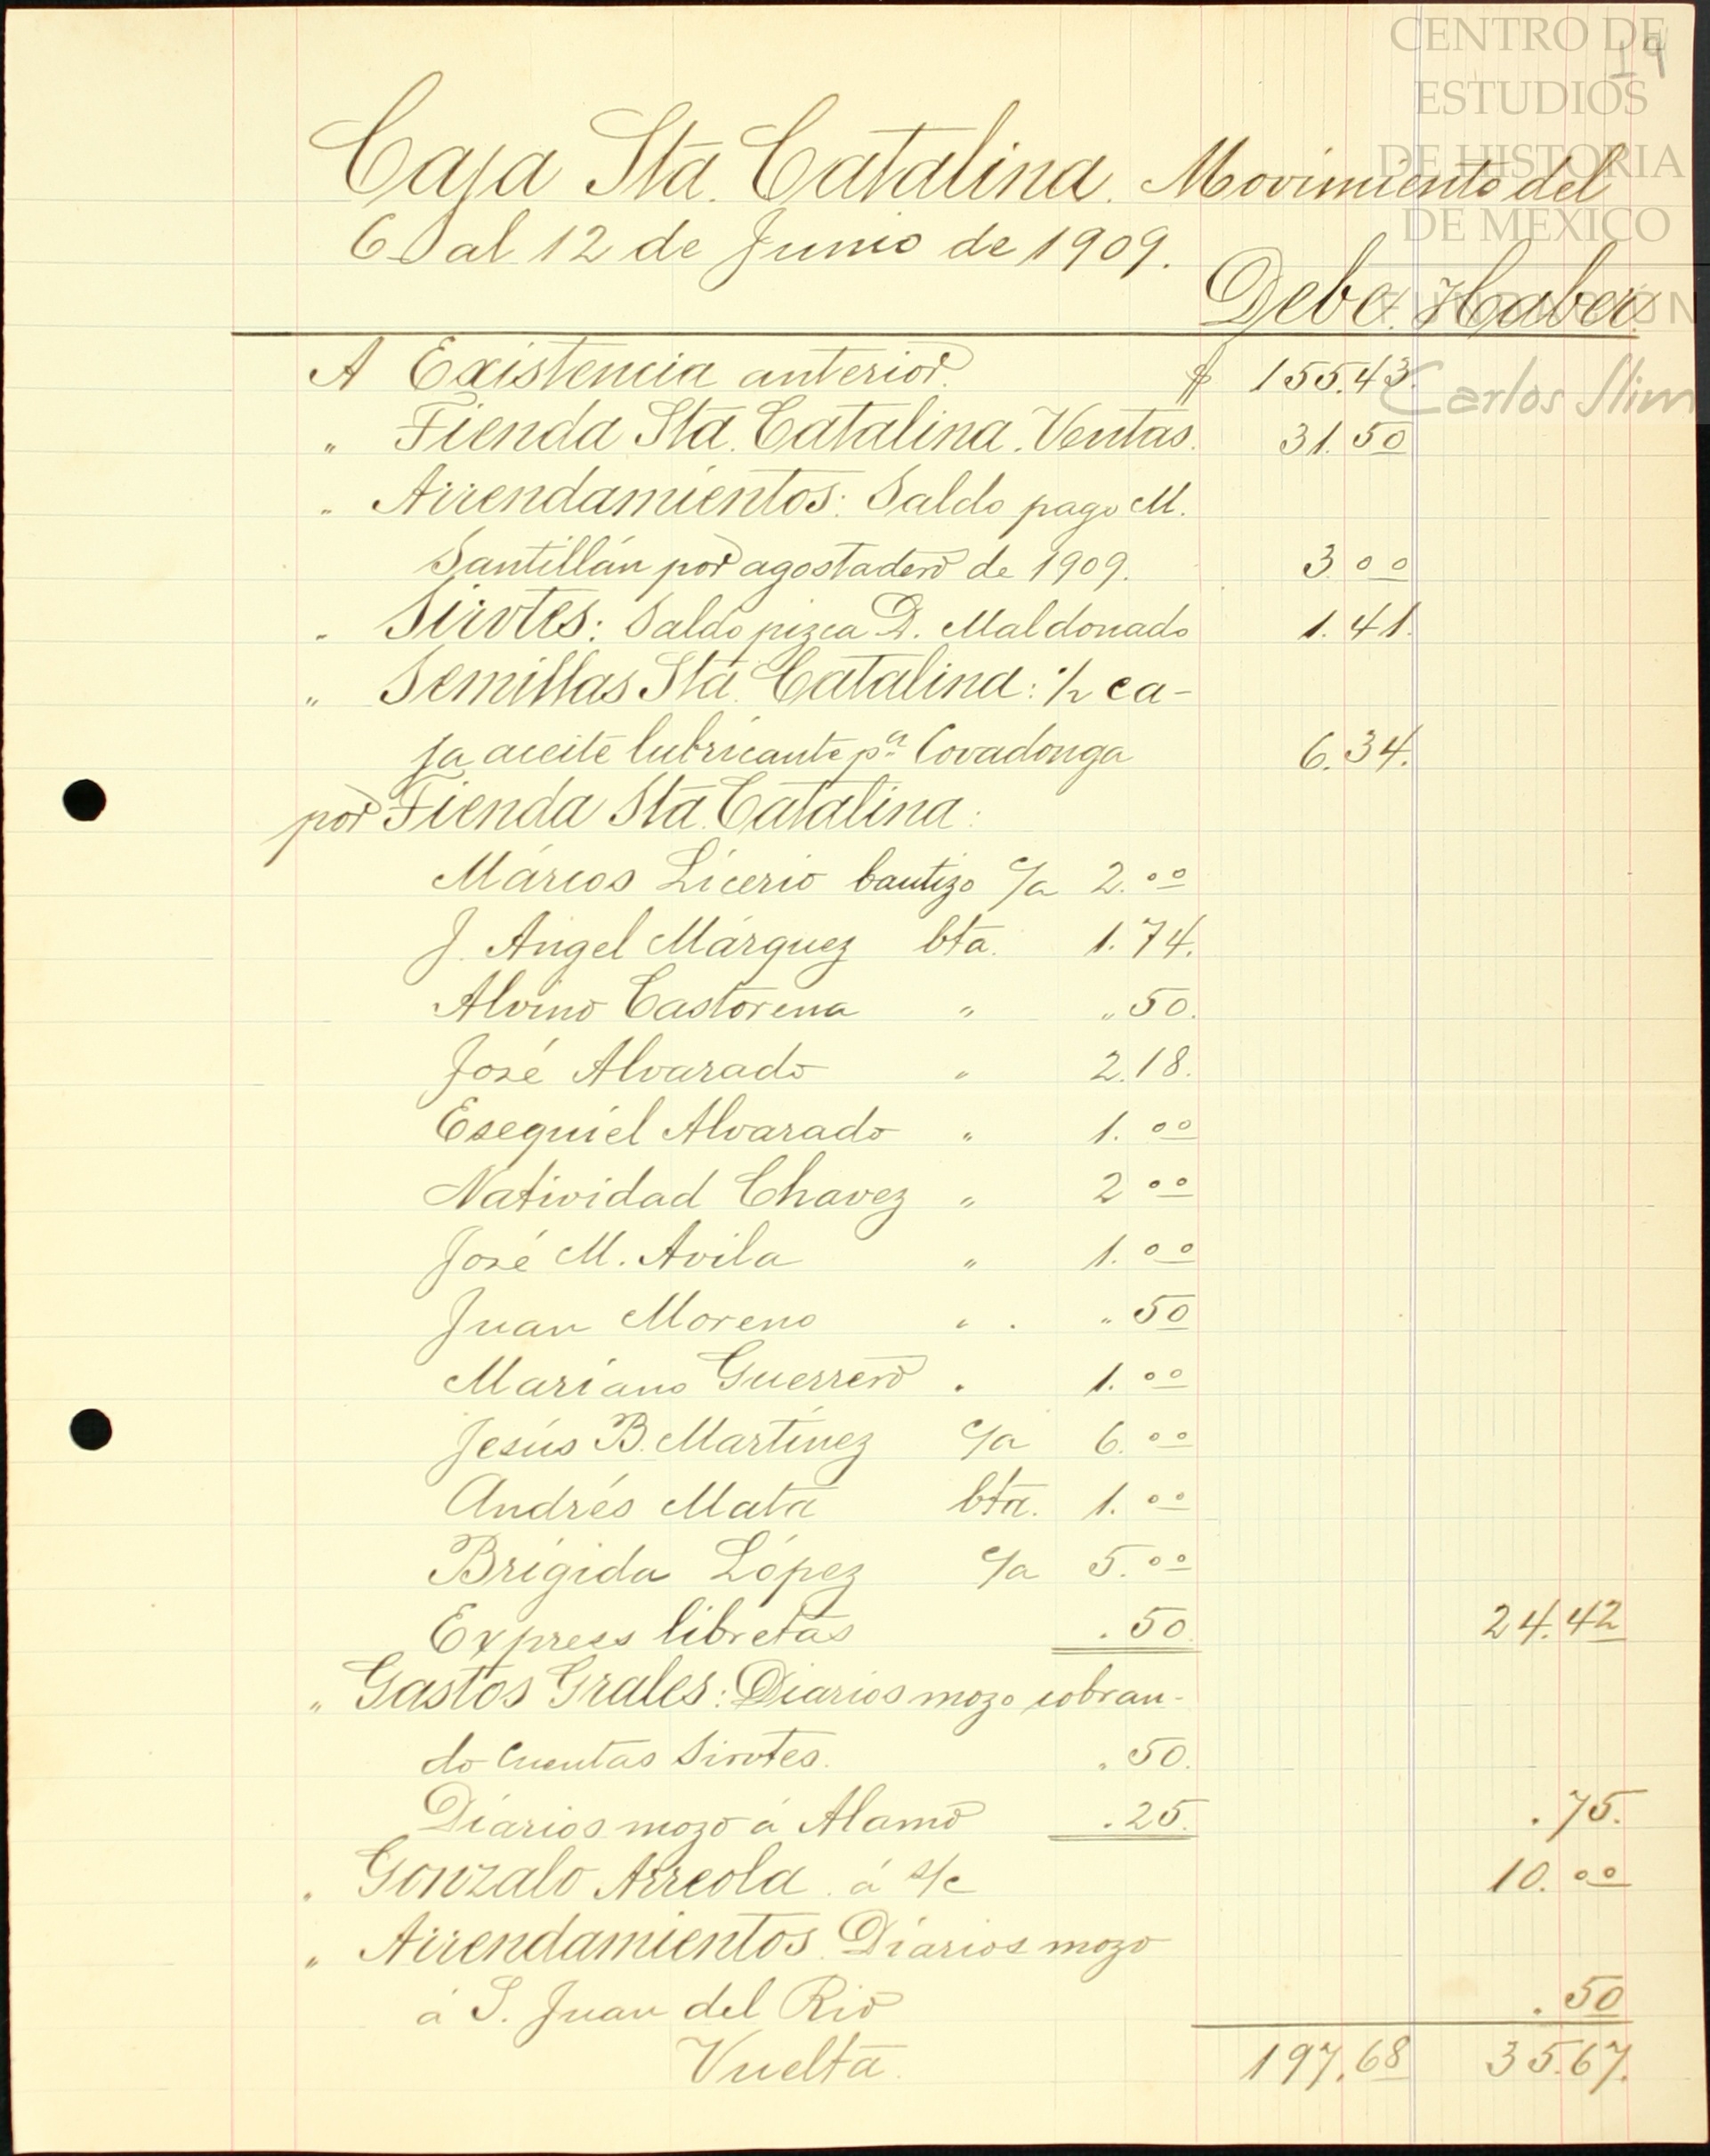 CENTRO DE
ESTUDIOS
DE HISTORIA
DE MEXICO
FUNDACIÓN
Carlos Slim
19
Caja Sta. Catalina. Movimiento del
6 al 12 de Junio de 1909.
Debe. Haber.
A Existencia anterior. $ 155.43.
" Tienda Sta. Catalina. Ventas. 31.50
" Arrendamientos: Saldo pago M.
Santillán por agostadero de 1909. 3.00
" Sirvtes: Saldo pizca D. Maldonado 1.41.
" Semillas Sta. Catalina: 1/2 ca-
ja aceite lubricante pa. Covadonga 6.34.
por Tienda Sta. Catalina:
Márcos Licerio bautizo c/a 2.00
J. Angel Márquez bta. 1.74.
Alvino Castorena " " 50.
José Alvarado " 2.18.
Esequiel Alvarado " 1.00
Natividad Chavez " 2 00
José M. Avila " 1.00
Juan Moreno " . " 50
Mariano Guerrero . 1.00
Jesús B. Martínez c/a 6.00
Andrés Mata bta. 1.00
Brígida López c/a 5.00
Express libretas . 50. 24.42
" Gastos Grales: Diarios mozo cobran-
do cuentas Sirvtes. . 50.
Diarios mozo á Alamo . 25. . 75.
" Gonzalo Arreola. á s/c 10.00
" Arrendamientos. Diarios mozo
á S. Juan del Rio . 50
Vuelta. 197.68 35.67.